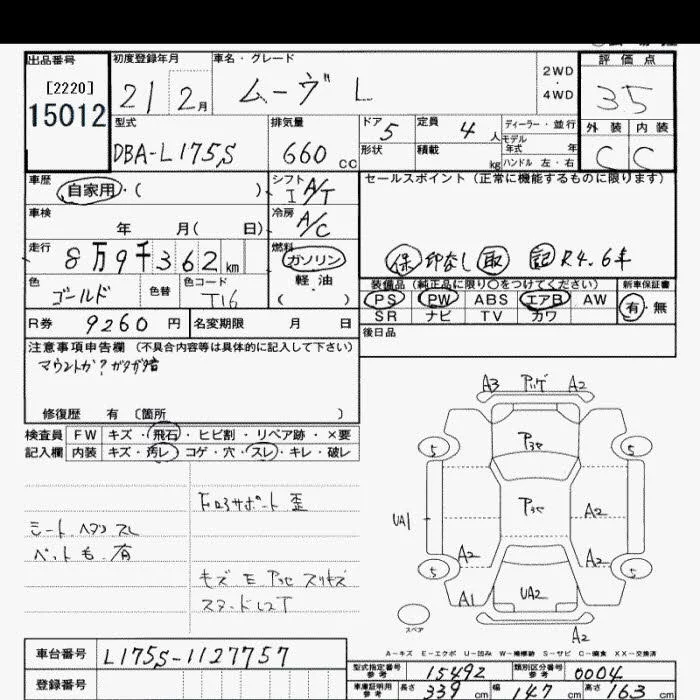 出品番号 初度登録年月 車名・グレード 2WD・4WD 評価点
[2220]
15012 21 2月 ムーヴ L 35
型式 排気量 ドア 5 定員 4人 ディーラー・並行 外装 内装
DBA-L175S 660cc 形状 積載 kg モデル年式 年 C C
ハンドル 左・右
車歴 自家用・( ) シフト I A/T セールスポイント (正常に機能するものに限ります)
車検 年 月( 日) 冷房 A/C
走行 8万9千362km 燃料 ガソリン 軽油 ( ) 保 印なし 取 記 R4.6年
色 ゴールド 色替 色コード T16 装備品 (純正品に限り○をつけてください) 新車保証書
PS PW ABS エアB AW 有・無
R券 9260円 名変期限 月 日 SR ナビ TV カワ
注意事項申告欄 (不具合内容等は具体的に記入して下さい) 後日品
マウントか?ガタガタ音
修復歴 有 〔箇所 〕
検査員 FW キズ・飛石・ヒビ割・リペア跡・×要
記入欄 内装 キズ・汚レ・コゲ・穴・スレ・キレ・破レ
A3 A2
5 5
UA1 A2
A2 A2
5 5
A1 UA2
スペア A2
サポート歪
シート
有
キズ E
A-キズ E-エクボ U-凹み W-補修跡 S-サビ C-腐食 XX-交換済
車台番号 L175S-1127757
登録番号
型式指定番号 参考 15492 類別区分番号 参考 0004
車庫証明用 参考 長さ 339cm 幅 147cm 高さ 163cm